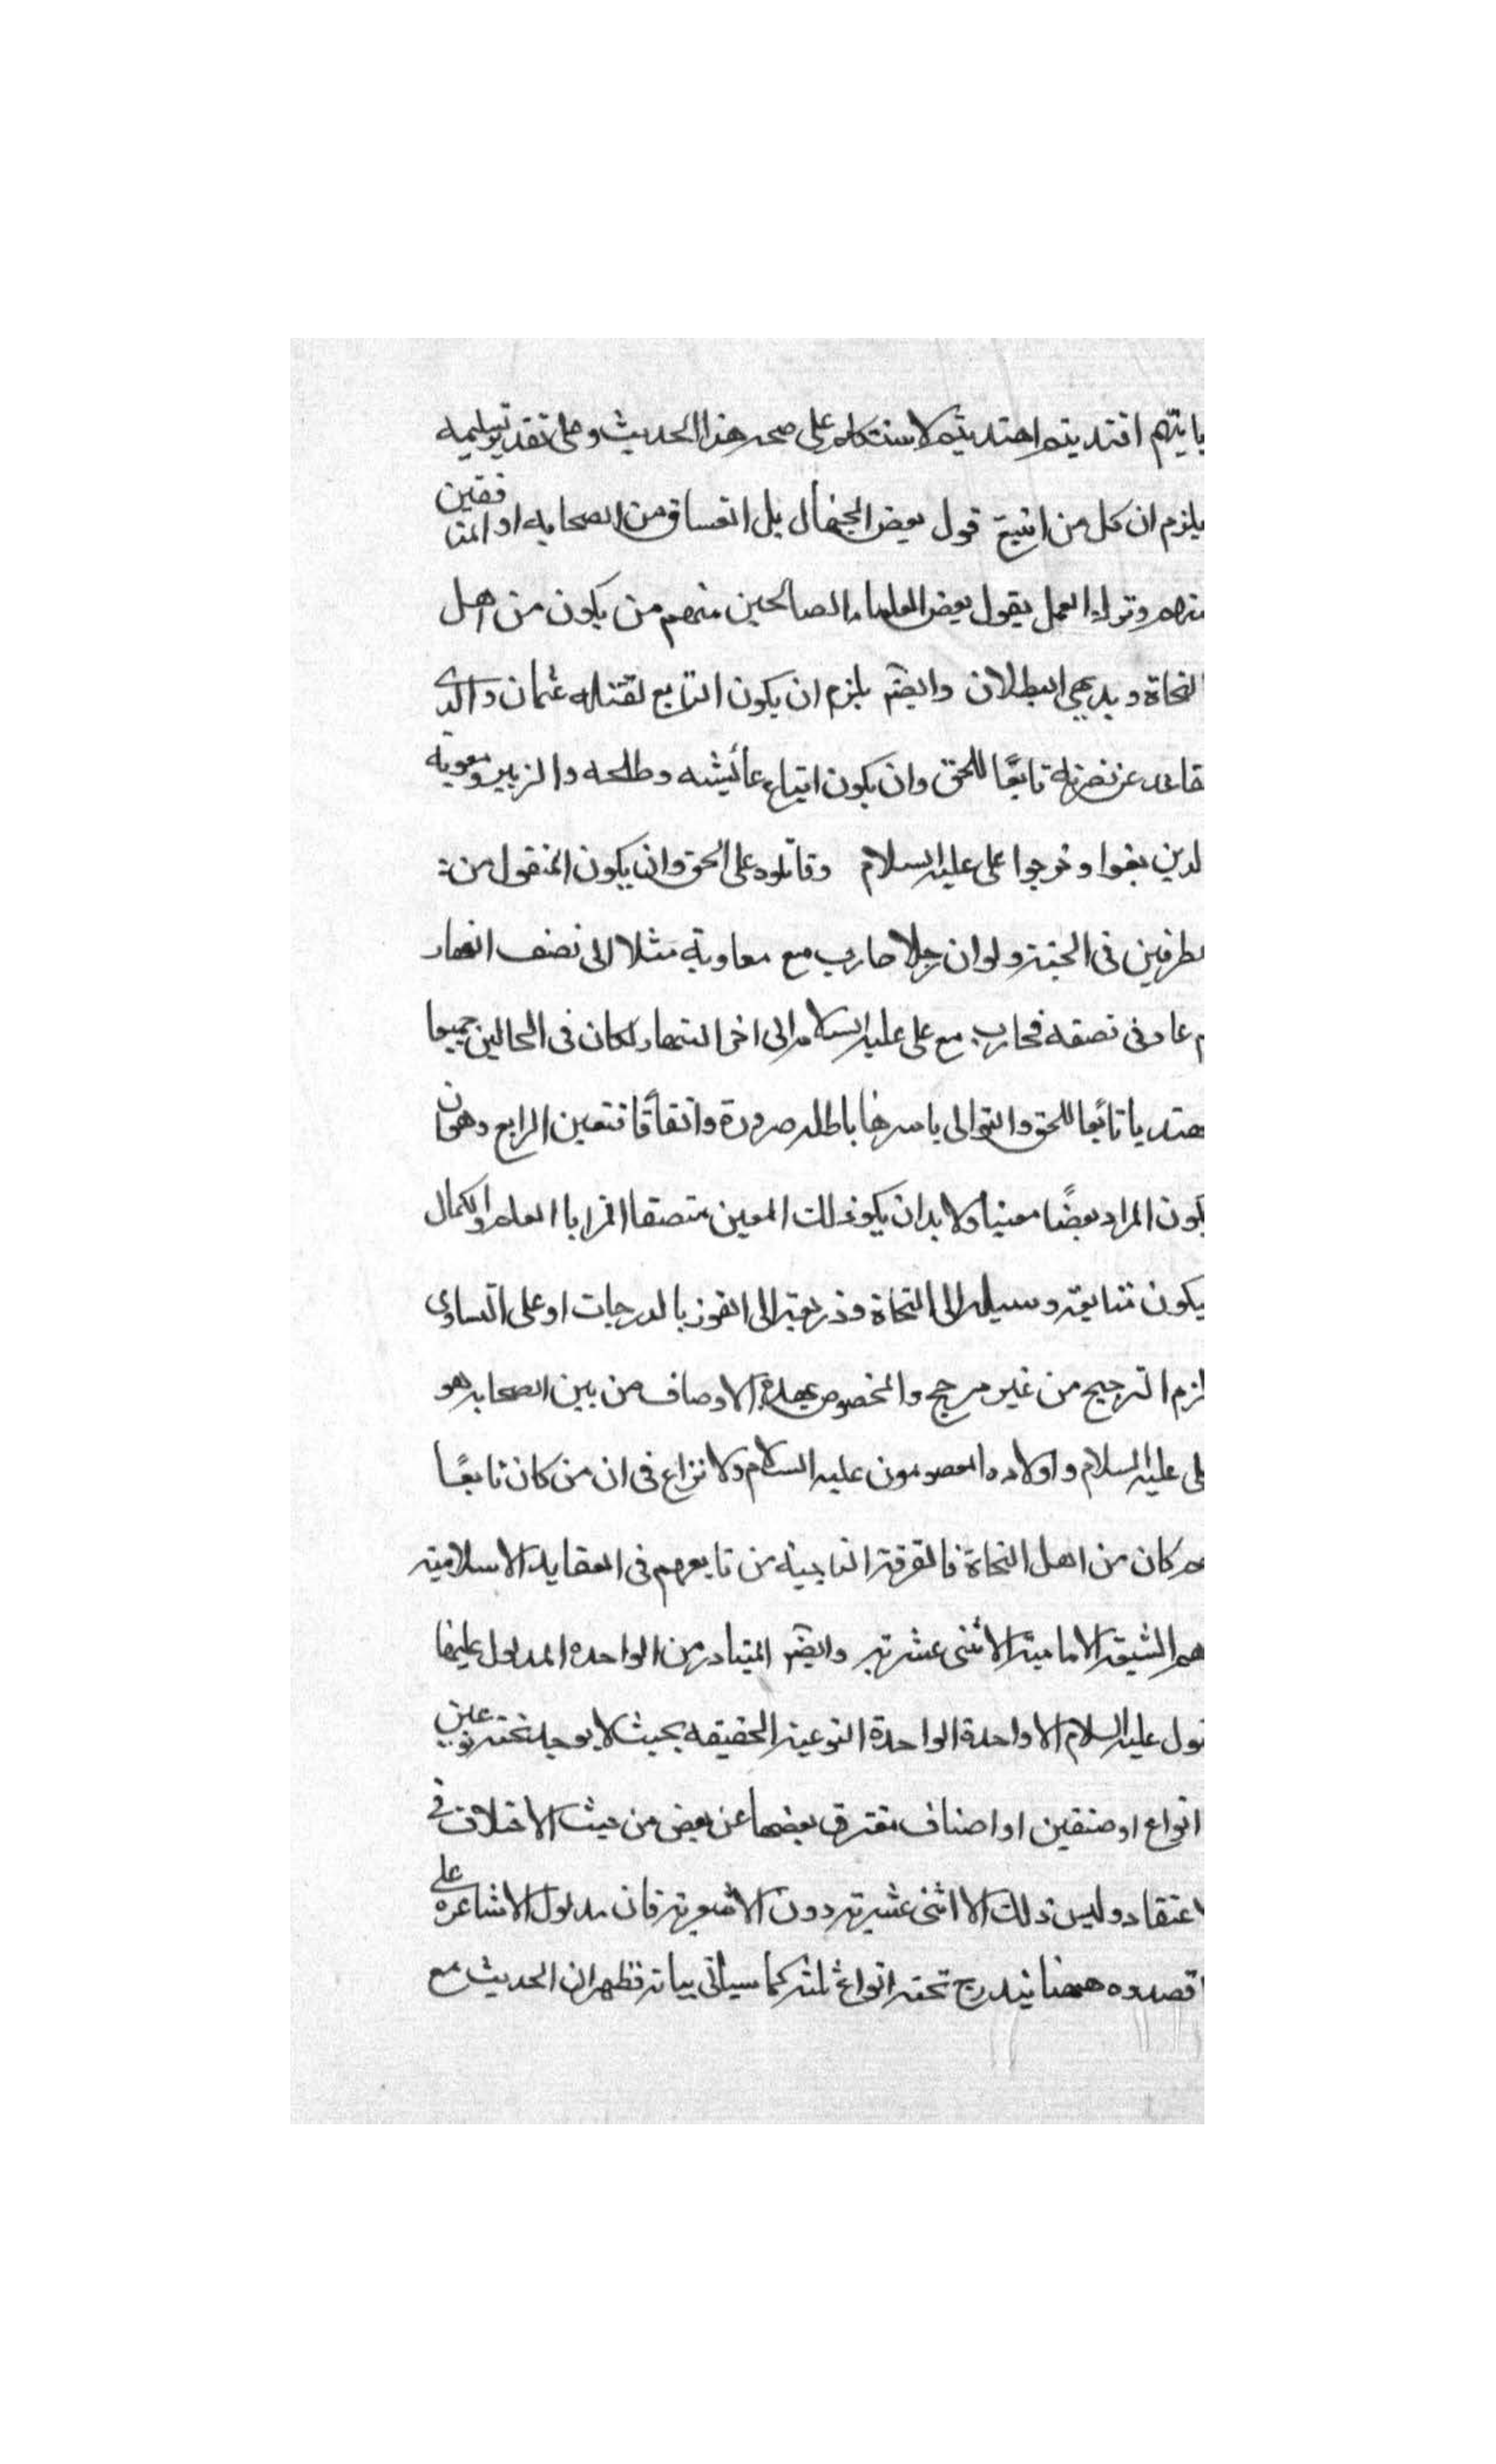 بايّهم اقتديتم اهتديتم لاستكلم على صحه هذا الحديث وعلى تقدير تسليمه
يلزم ان كل من اتبع قول بعض الجهال بل الفساق من الصحابه او المنافقين
منهم وترك العمل بقول بعض العلماء الصالحين منهم من يكون من اهل
النجاة وبديهي البطلان وايضم يلزم ان يكون التابع لقتله عثمان والذى
تقاعد عن نصرته تابعًا للحق وان يكون اتباع عائيشه وطلحه والزبير ومعويه
لدين بغوا وخرجوا على عليه السلام وقاتلوه على الحق وان يكون المنقول من
لطرفين فى الجنة ولو ان رجلا حارب مع معاوية مثلا الى نصف النهار
م عاد فى نصفه فحارب مع على عليه السلام الى اخر النهار لكان فى الحالين جميعا
هتديا تابعا للحق والتوالى باسرها باطله ضرورة واتفاقا فتعين الرابع وهوان
يكون المراد بعضًا معينا ولا بد ان يكون ذلك المعين متصفا بالعلم والكمال
يكون متابعته وسيله الى النجاة وذريعة الى الفوز بالدرجات او على التساوى
لزم الترجيح من غير مرجح والمخصوص بهذه الاوصاف من بين الصحابه هو
على عليه السلام واولاده المعصومون عليه السلام ولا نزاع فى ان من كان تابعًا
هم كان من اهل النجاة فالفرقة الناجية من تابعهم فى العقايد الاسلامية
هم الشيعة الامامية الاثنى عشرته وايضم المتبادر من الواحده المدلول عليها
قول عليه السلام الا واحدة الواحدة النوعية الحقيقه بحيث لا يوجد تحته نوعين
انواع او صنفين او اصناف تفترق بعضها عن بعض من حيث الاختلاف فى
اعتقاد وليس ذلك الا اثنى عشرته دون الاشعرية فان مدلول الاشاعره على
قصدوه ههنا يندرج تحته انواع ثلثه كما سياتى بيانه فظهر ان الحديث مع